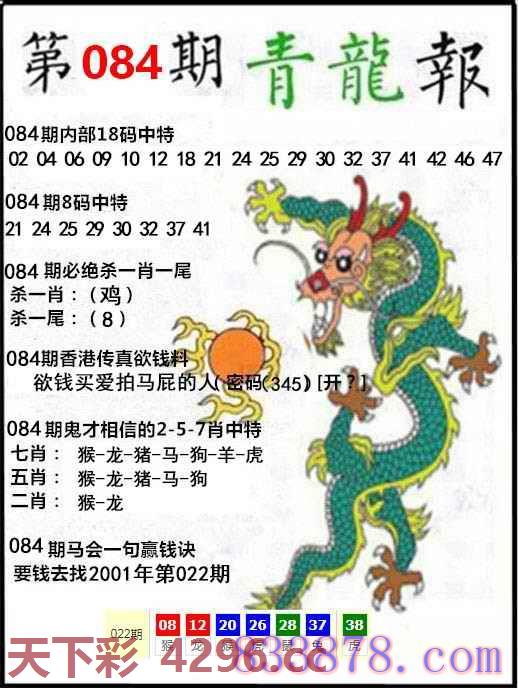 第084期青龍報
084期内部18码中特
02 04 06 09 10 12 18 21 24 25 29 30 32 37 41 42 46 47
084期8码中特
21 24 25 29 30 32 37 41
084期必绝杀一肖一尾
杀一肖：（鸡）
杀一尾：（8）
084期香港传真欲钱料
欲钱买爱拍马屁的人(密码(345)[开？]
084期鬼才相信的2-5-7肖中特
七肖： 猴-龙-猪-马-狗-羊-虎
五肖： 猴-龙-猪-马-狗
二肖： 猴-龙
084期马会一句赢钱诀
要钱去找2001年第022期
022期 08 12 20 26 28 37 38
猴 龙 猴 虎 鼠 兔 虎
天下彩 4296.cc
838878.com